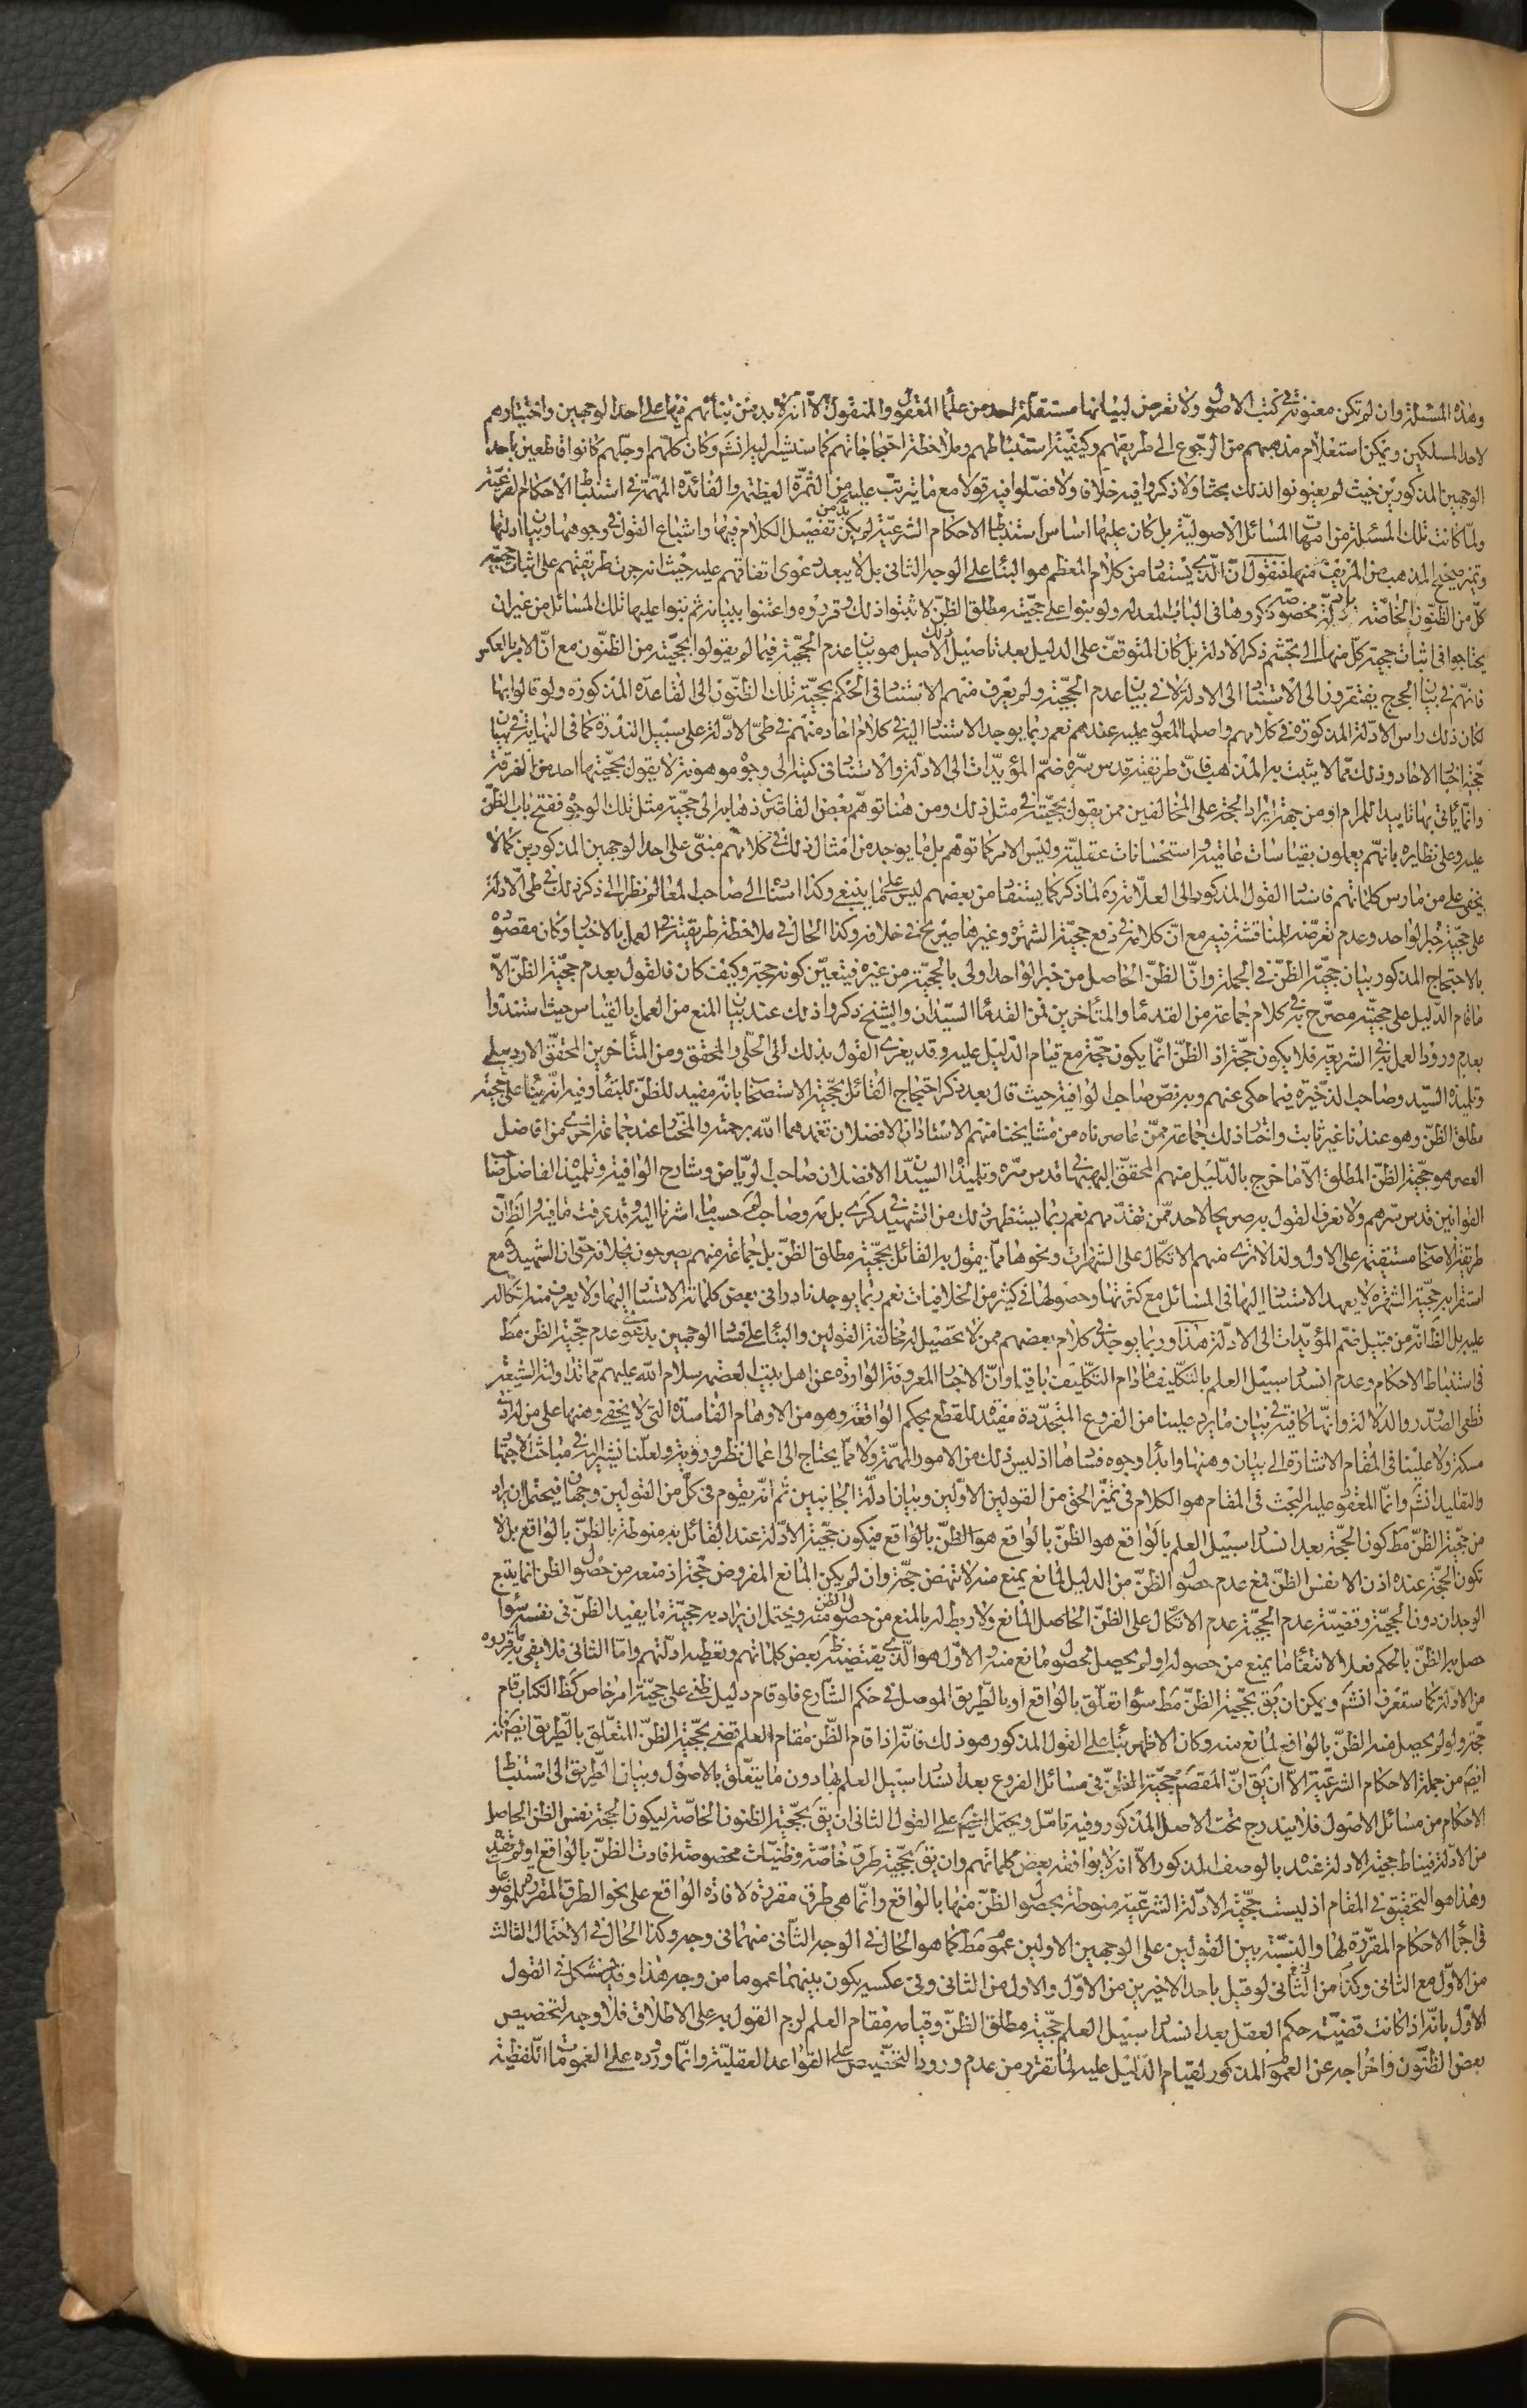 وهذه المسئلة وان لم تكن معنونة فى كتب الاصول ولا تعرض لبيانها مستقلة احد من علماء المعقول والمنقول الا انه لا بد من بنائهم فيها على احد الوجهين واختيارهم
لاحد المسلكين ويمكن استعلام مذهبهم من الرجوع الى طريقتهم وكيفية استنباطهم وملاحظة احتجاجاتهم كما سنشير اليه انش وكان كلهم وجلهم كانوا قاطعين باحد
الوجهين المذكورين حيث لم يعنونوا لذلك بحثا ولا ذكروا فيه خلافا ولا فصلوا فيه قولا مع ما يترتب عليه من الثمرة العظيمة والفائدة المهمة فى استنباط الاحكام الفرعية
ولما كانت تلك المسئلة من امهات المسائل الاصولية بل كان عليها اساس استنباط الاحكام الشرعية لم يكن بد من تفصيل الكلام فيها واشباع القول فى وجوهها وبيان ادلتها
وتميز صحيح المذهب من المزيف منها فنقول ان الذى يستفاد من كلام المعظم هو البناء على الوجه الثانى بل لا يبعد دعوى اتفاقهم عليه حيث انه جرت طريقتهم على اثبات حجية
كل من الظنون الخاصة بادلة مخصوصة ذكروها فى الباب المعد له ولو بنوا على حجية مطلق الظن لاثبتوا ذلك وقرروه واعتنوا ببيانه ثم بنوا عليها تلك المسائل من غير ان
يحتاجوا فى اثبات حجية كل منها الى تجشم ذكر الادلة بل كان المتوقف على الدليل بعد تاصيل ذلك الاصل هو بيان عدم الحجية فيما لم يقولوا بحجيته من الظنون مع ان الامر بالعكس
فانهم فى بيان الحجج يفتقرون الى الاستناد الى الادلة لا فى بيان عدم الحجية ولم يعرف منهم الاستناد فى الحكم بحجية تلك الظنون الى القاعدة المذكورة ولو قالوا بها
لكان ذلك راس الادلة المذكورة فى كلامهم واصلها المعول عليه عندهم نعم ربما يوجد الاستناد اليه فى كلام احاد منهم فى طى الادلة على سبيل الندرة كما فى النهاية فى بيان
حجية اخبار الاحاد وذلك مما لا يثبت به المذهب فان طريقته قدس سره ضم المؤيدات الى الادلة والاستناد فى كتبه الى وجوه موهونة لا يقول بحجيتها احد من الفرقة
وانما يأتى بها تاييدا للمرام او من جهة ايراد الحجة على المخالفين ممن يقول بحجيته فى مثل ذلك ومن هنا توهم بعض القاصرين ذهابه الى حجية مثل تلك الوجوه ففتح باب الظن
عليه وعلى نظايره بانهم يعملون بقياسات عامية واستحسانات عقلية وليس الامر كما توهم بل ما يوجد من امثال ذلك فى كلامهم مبنى على احد الوجهين المذكورين كما لا
يخفى على من مارس كلماتهم فاسناد القول المذكور الى العلامة ره لما ذكر كما يستفاد من بعضهم ليس على ما ينبغى وكذا اسناده الى صاحب المعالم نظرا الى ذكر ذلك فى طى الادلة
على حجية خبر الواحد وعدم تعرضه للمناقشة فيه مع ان كلامه فى دفع حجية الشهرة وغيرها صريح فى خلافه وكذا الحال فى ملاحظة طريقته فى العمل بالاخبار وكان مقصوده
بالاحتجاج المذكور بيان حجية الظن فى الجملة وان الظن الحاصل من خبر الواحد اولى بالحجية من غيره فيتعين كونه حجة وكيف كان فالقول بعدم حجية الظن الا
ما قام الدليل على حجيته مصرح به فى كلام جماعة من القدماء والمتاخرين فمن القدماء السيدان والشيخ ذكروا ذلك عند بيان المنع من العمل بالقياس حيث استندوا
بعدم ورود العمل به فى الشريعة فلا يكون حجة اذ الظن انما يكون حجة مع قيام الدليل عليه وقد يعزى القول بذلك الى الحلى والمحقق ومن المتأخرين المحقق الاردبيلى
وتلميذه السيد وصاحب الذخيرة فيما حكى عنهم وبه نص صاحب الوافية حيث قال بعد ذكر احتجاج القائل بحجية الاستصحاب بانه مفيد للظن للبقاء وفيه انه بناء على حجية
مطلق الظن وهو عندنا غير ثابت واختار ذلك جماعة ممن عاصرناه من مشايخنا منهم الاستاذان الافضلان تغمدهما الله برحمته والمختار عند جماعة اخرى من افاضل
العصر هو حجية الظن المطلق الا ما خرج بالدليل منهم المحقق البهبهانى قدس سره وتلميذاه السيدان الافضلان صاحب الرياض وشارح الوافية وتلميذه الفاضل صاحب
القوانين قدس سرهم ولا نعرف القول به صريحا لاحد ممن تقدمهم نعم ربما يستظهر ذلك من الشهيد فى كرى بل مه وصاحب لم حسب ما اشرنا اليه وقد عرفت ما فيه والظ ان
طريقة الاصحاب مستقيمة على الاول ولذا لا ترى منهم الاتكال على الشهرات ونحوها مما يقول به القائل بحجية مطلق الظن بل جماعة منهم يصرحون بخلافه حتى ان الشهيد ره مع
استقرابه حجية الشهرة لا يعهد الاستناد اليها فى المسائل مع كثرتها وحصولها فى كثير من الخلافيات نعم ربما يوجد نادرا فى بعض كلماته الاستناد اليها ولا يعرف منه اتكاله
عليه بل الظ انه من قبيل ضم المؤيدات الى الادلة هذا وربما يوجد فى كلام بعضهم ممن لا تحصيل له مخالفة القولين والبناء على فساد الوجهين بدعوى عدم حجية الظن مط
فى استنباط الاحكام وعدم انسداد سبيل العلم بالتكليف مادام التكليف باقيا وان الاخبار المعروفة الواردة عن اهل بيت العصمة سلام الله عليهم مما تداولته الشيعة
قطعى الصدور والدلالة وانها كافية فى بيان ما يرد علينا من الفروع المتجددة مفيدة للقطع بحكم الواقعة وهو من الاوهام الفاسدة التى لا يخفى وهنها على من له ادنى
مسكة ولا علينا فى المقام الاشارة الى بيان وهنها وابداء وجوه فسادها اذ ليس ذلك من الامور المهمة ولا مما يحتاج الى اعمال نظر وروية ولعلنا نشير اليه فى مباحث الاجتهاد
والتقليد انش وانما المعقود عليه البحث فى المقام هو الكلام فى تميز الحق من القولين الاولين وبيان ادلة الجانبين ثم انه يقوم فى كل من القولين وجهان فيحتمل ان يراد
من حجية الظن مط كون الحجة بعد انسداد سبيل العلم بالواقع هو الظن بالواقع هو الظن بالواقع فيكون حجية الادلة عند القائل به منوطة بالظن بالواقع بل لا
تكون الحجة عنده اذن الا نفس الظن فمع عدم حصول الظن من الدليل لمانع يمنع منه لا تنهض حجة وان لم يكن المانع المفروض حجة اذ منعه من حصول الظن انما يتبع
الوجدان دون الحجية وقضية عدم الحجية عدم الاتكال على الظن الحاصل المانع ولا ربط له بالمنع من حصول الظن منه ويحتمل ان يراد به حجية ما يفيد الظن فى نفسه سواء
حصل به الظن بالحكم فعلا لانتفاء ما يمنع من حصوله او لم يحصل لحصول مانع منه والاول هو الذى يقتضيه ظ بعض كلماتهم وتعطيه ادلتهم واما الثانى فلا يفى به ما قرروه
من الادلة كما ستعرف انش ويمكن ان يق بحجية الظن مط سواء تعلق بالواقع او بالطريق الموصل فى حكم الشارع فلو قام دليل ظنى على حجية امر خاص كظ الكتاب قام
حجة ولو لم يحصل منه الظن بالواقع لمانع منه وكان الاظهر بناء على القول المذكور هو ذلك فانه اذا قام الظن مقام العلم قضى بحجية الظن المتعلق بالطريق ايض فانه
ايض من جملة الاحكام الشرعية الا ان يق ان المقصود حجية الظن فى مسائل الفروع بعد انسداد سبيل العلم بها دون ما يتعلق بالاصول وبيان الطريق الى استنباط
الاحكام من مسائل الاصول فلا يندرج تحت الاصل المذكور وفيه تامل ويحتمل ايض على القول الثانى ان يق بحجية الظنون الخاصة ليكون الحجة نفس الظن الحاصل
من الادلة فيناط حجية الادلة عنده بالوصف المذكور الا انه لا يوافقه بعض كلماتهم وان يق بحجية طرق خاصة وظنيات مخصوصة افادت الظن بالواقع او لم تفده
وهذا هو التحقيق فى المقام اذ ليست حجية الادلة الشرعية منوطة بحصول الظن منها بالواقع وانما هى طرق مقررة لافادة الواقع على نحو الطرق المقررة للموضوعات
فى اجراء الاحكام المقررة لها والنسبة بين القولين على الوجهين الاولين عموم مط كما هو الحال فى الوجه الثانى منهما فى وجه وكذا الحال فى الاحتمال الثالث
من الاول مع الثانى وكذا من الثانى لو قيل باحد الاخيرين من الاول والاول من الثانى وفى عكسه يكون بينهما عموما من وجه هذا وقد يستشكل فى القول
الاول بانه اذا كانت قضية حكم العقل بعد انسداد سبيل العلم حجية مطلق الظن وقيامه مقام العلم لزم القول به على الاطلاق فلا وجه لتخصيص
بعض الظنون واخراجه عن العموم المذكور لقيام الدليل عليه لما تقرر من عدم ورود التخصيص على القواعد العقلية وانما وروده على العمومات اللفظية